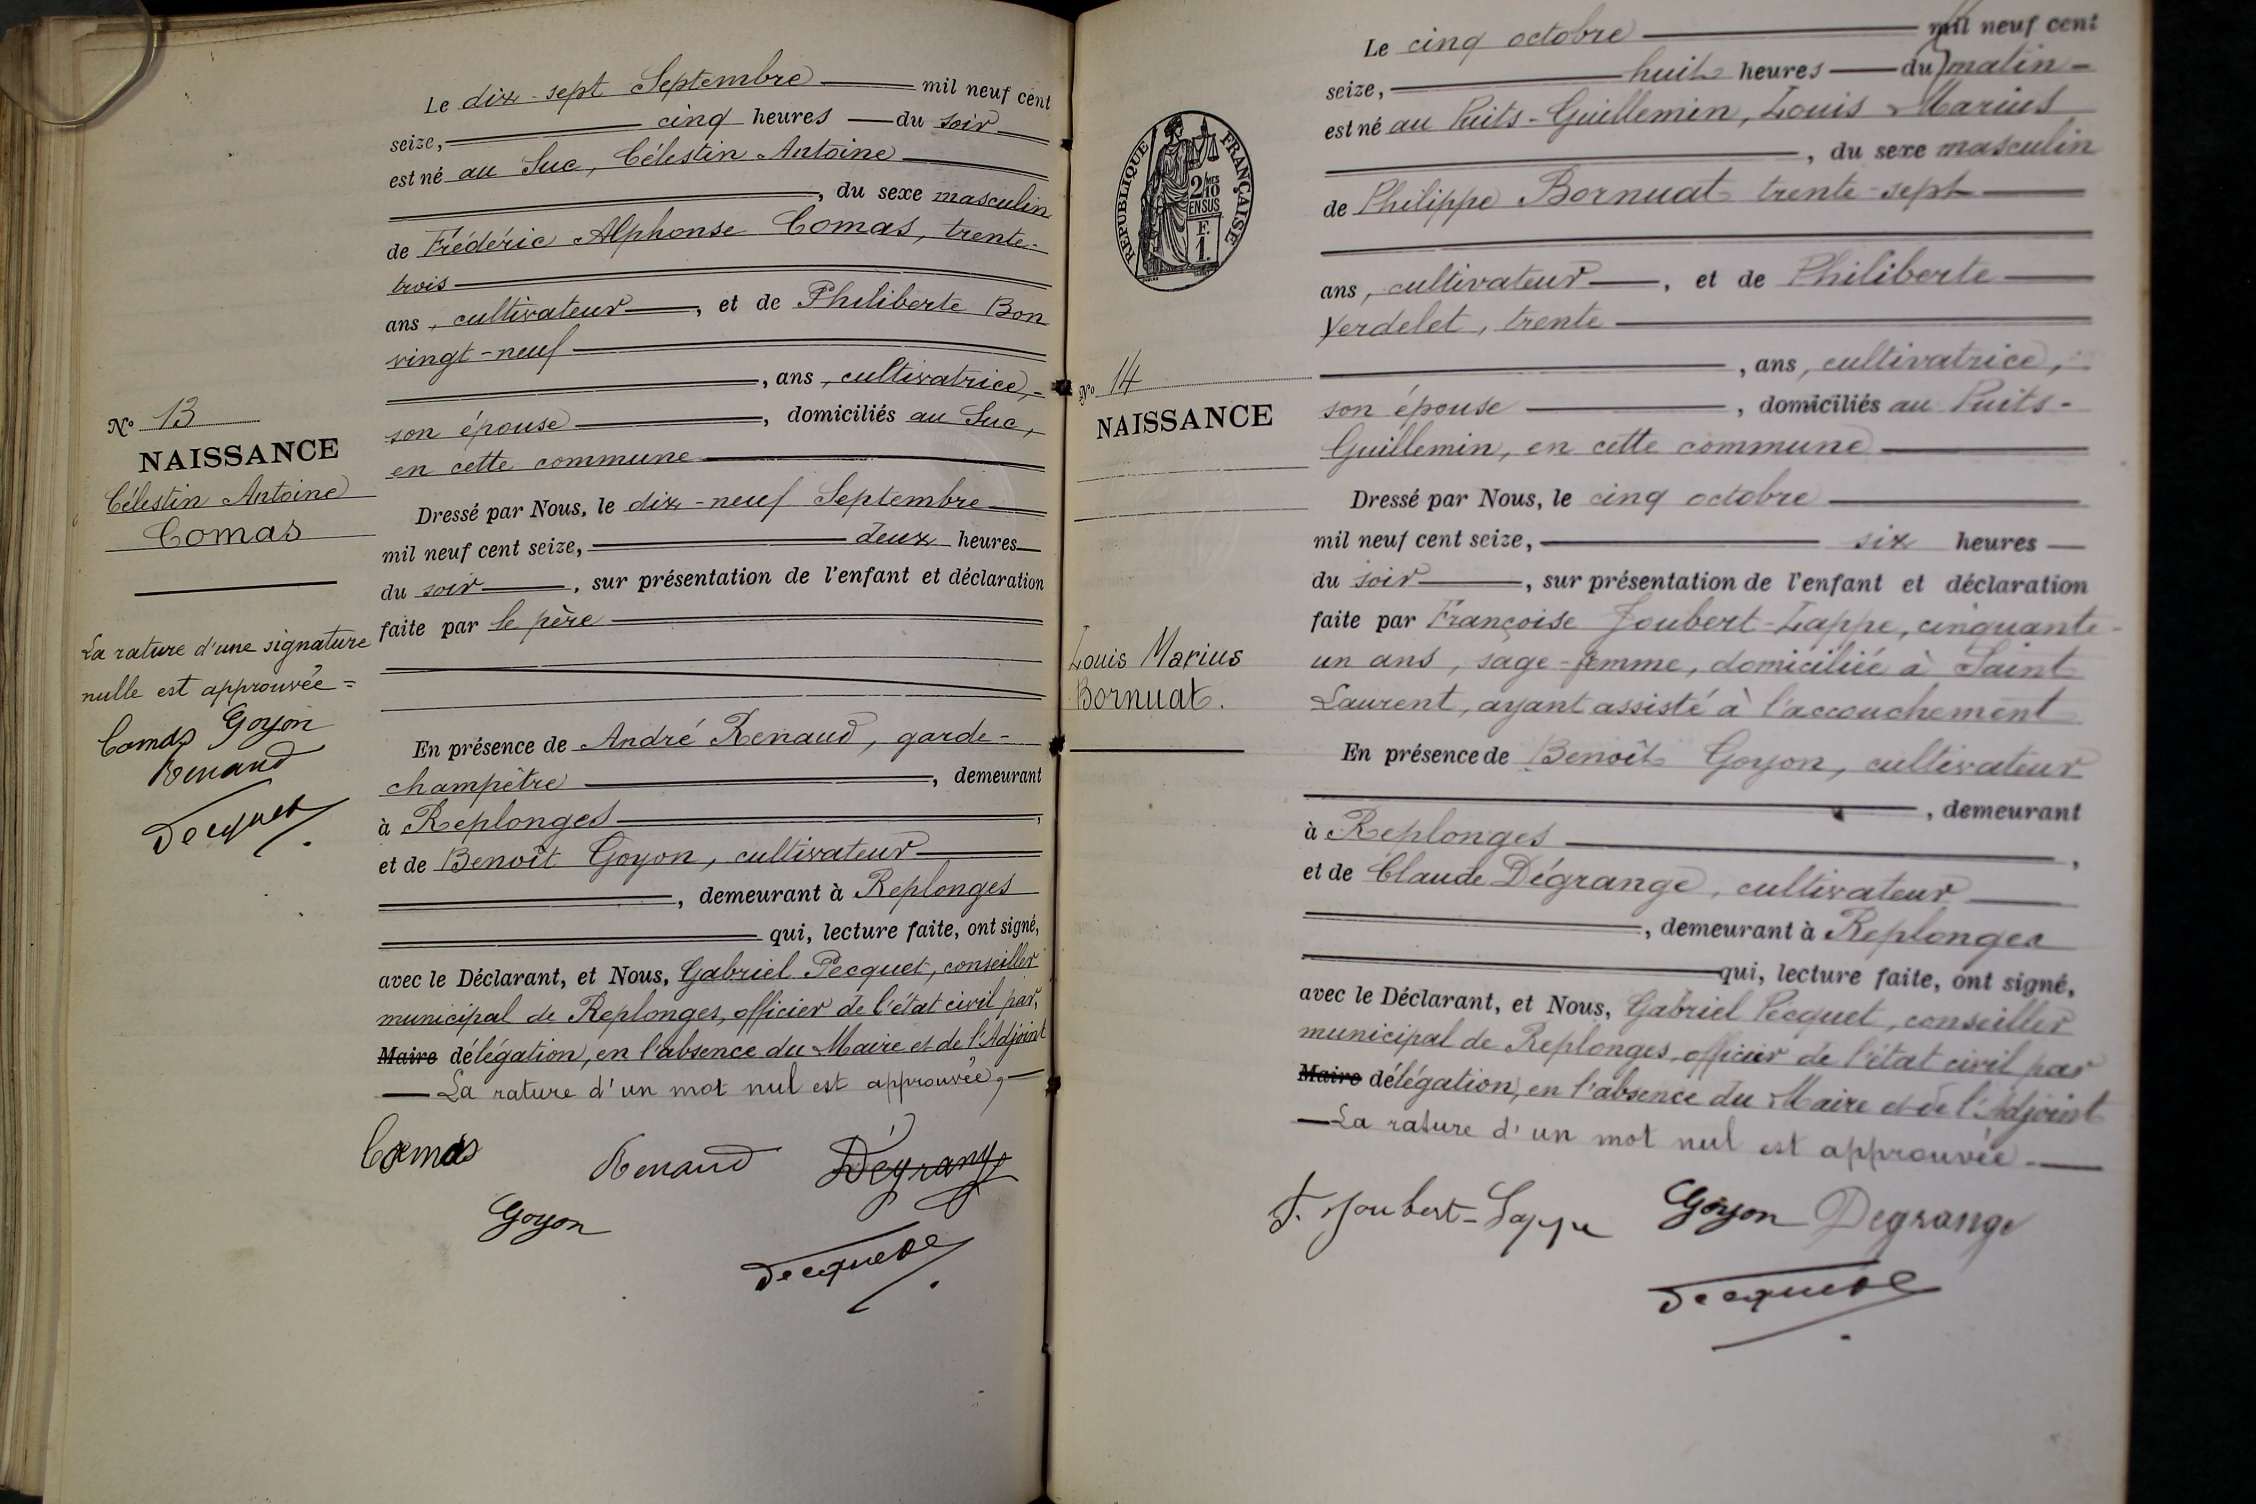 Le dix-sept Septembre mil neuf cent
seize, cinq heures du soir
est né au Suc, Célestin Antoine
, du sexe masculin
de Frédéric Alphonse Comas, trente-
trois
ans, cultivateur, et de Philiberte Bon
vingt-neuf
, ans, cultivatrice,
son épouse, domiciliés au Suc,
en cette commune
Dressé par Nous, le dix-neuf Septembre
mil neuf cent seize, deux heures
du soir, sur présentation de l'enfant et déclaration
faite par le père
En présence de André Renaud, garde-
champêtre, demeurant
à Replonges,
et de Benoît Goyon, cultivateur
, demeurant à Replonges
qui, lecture faite, ont signé,
avec le Déclarant, et Nous, Gabriel Pecquet, conseiller
municipal de Replonges, officier de l'état civil par
Maire délégation, en l'absence du Maire et de l'Adjoint
La rature d'un mot nul est approuvée,
Comas Renaud Dégrange
Goyon
Pecquet
No 13
NAISSANCE
Célestin Antoine
Comas
La rature d'une signature
nulle est approuvée =
Comas Goyon
Renaud
Pecquet
Le cinq octobre mil neuf cent
seize, huit heures du matin
est né au Puits-Guillemin, Louis Marius
, du sexe masculin
de Philippe Bornuat trente-sept
ans, cultivateur, et de Philiberte
Verdelet, trente
, ans, cultivatrice,
son épouse, domiciliés au Puits-
Guillemin, en cette commune
Dressé par Nous, le cinq octobre
mil neuf cent seize, six heures
du soir, sur présentation de l'enfant et déclaration
faite par Françoise Joubert-Lappe, cinquante-
un ans, sage-femme, domiciliée à Saint
Laurent, ayant assisté à l'accouchement
En présence de Benoît Goyon, cultivateur
, demeurant
à Replonges,
et de Claude Dégrange, cultivateur
, demeurant à Replonges
qui, lecture faite, ont signé,
avec le Déclarant, et Nous, Gabriel Pecquet, conseiller
municipal de Replonges, officier de l'état civil par
Maire délégation, en l'absence du Maire et de l'Adjoint
La rature d'un mot nul est approuvée
F. Joubert-Lappe Goyon Degrange
Pecquet
RÉPUBLIQUE FRANÇAISE
2/MES
10
EN SUS
F.
1.
No 14
NAISSANCE
Louis Marius
Bornuat.